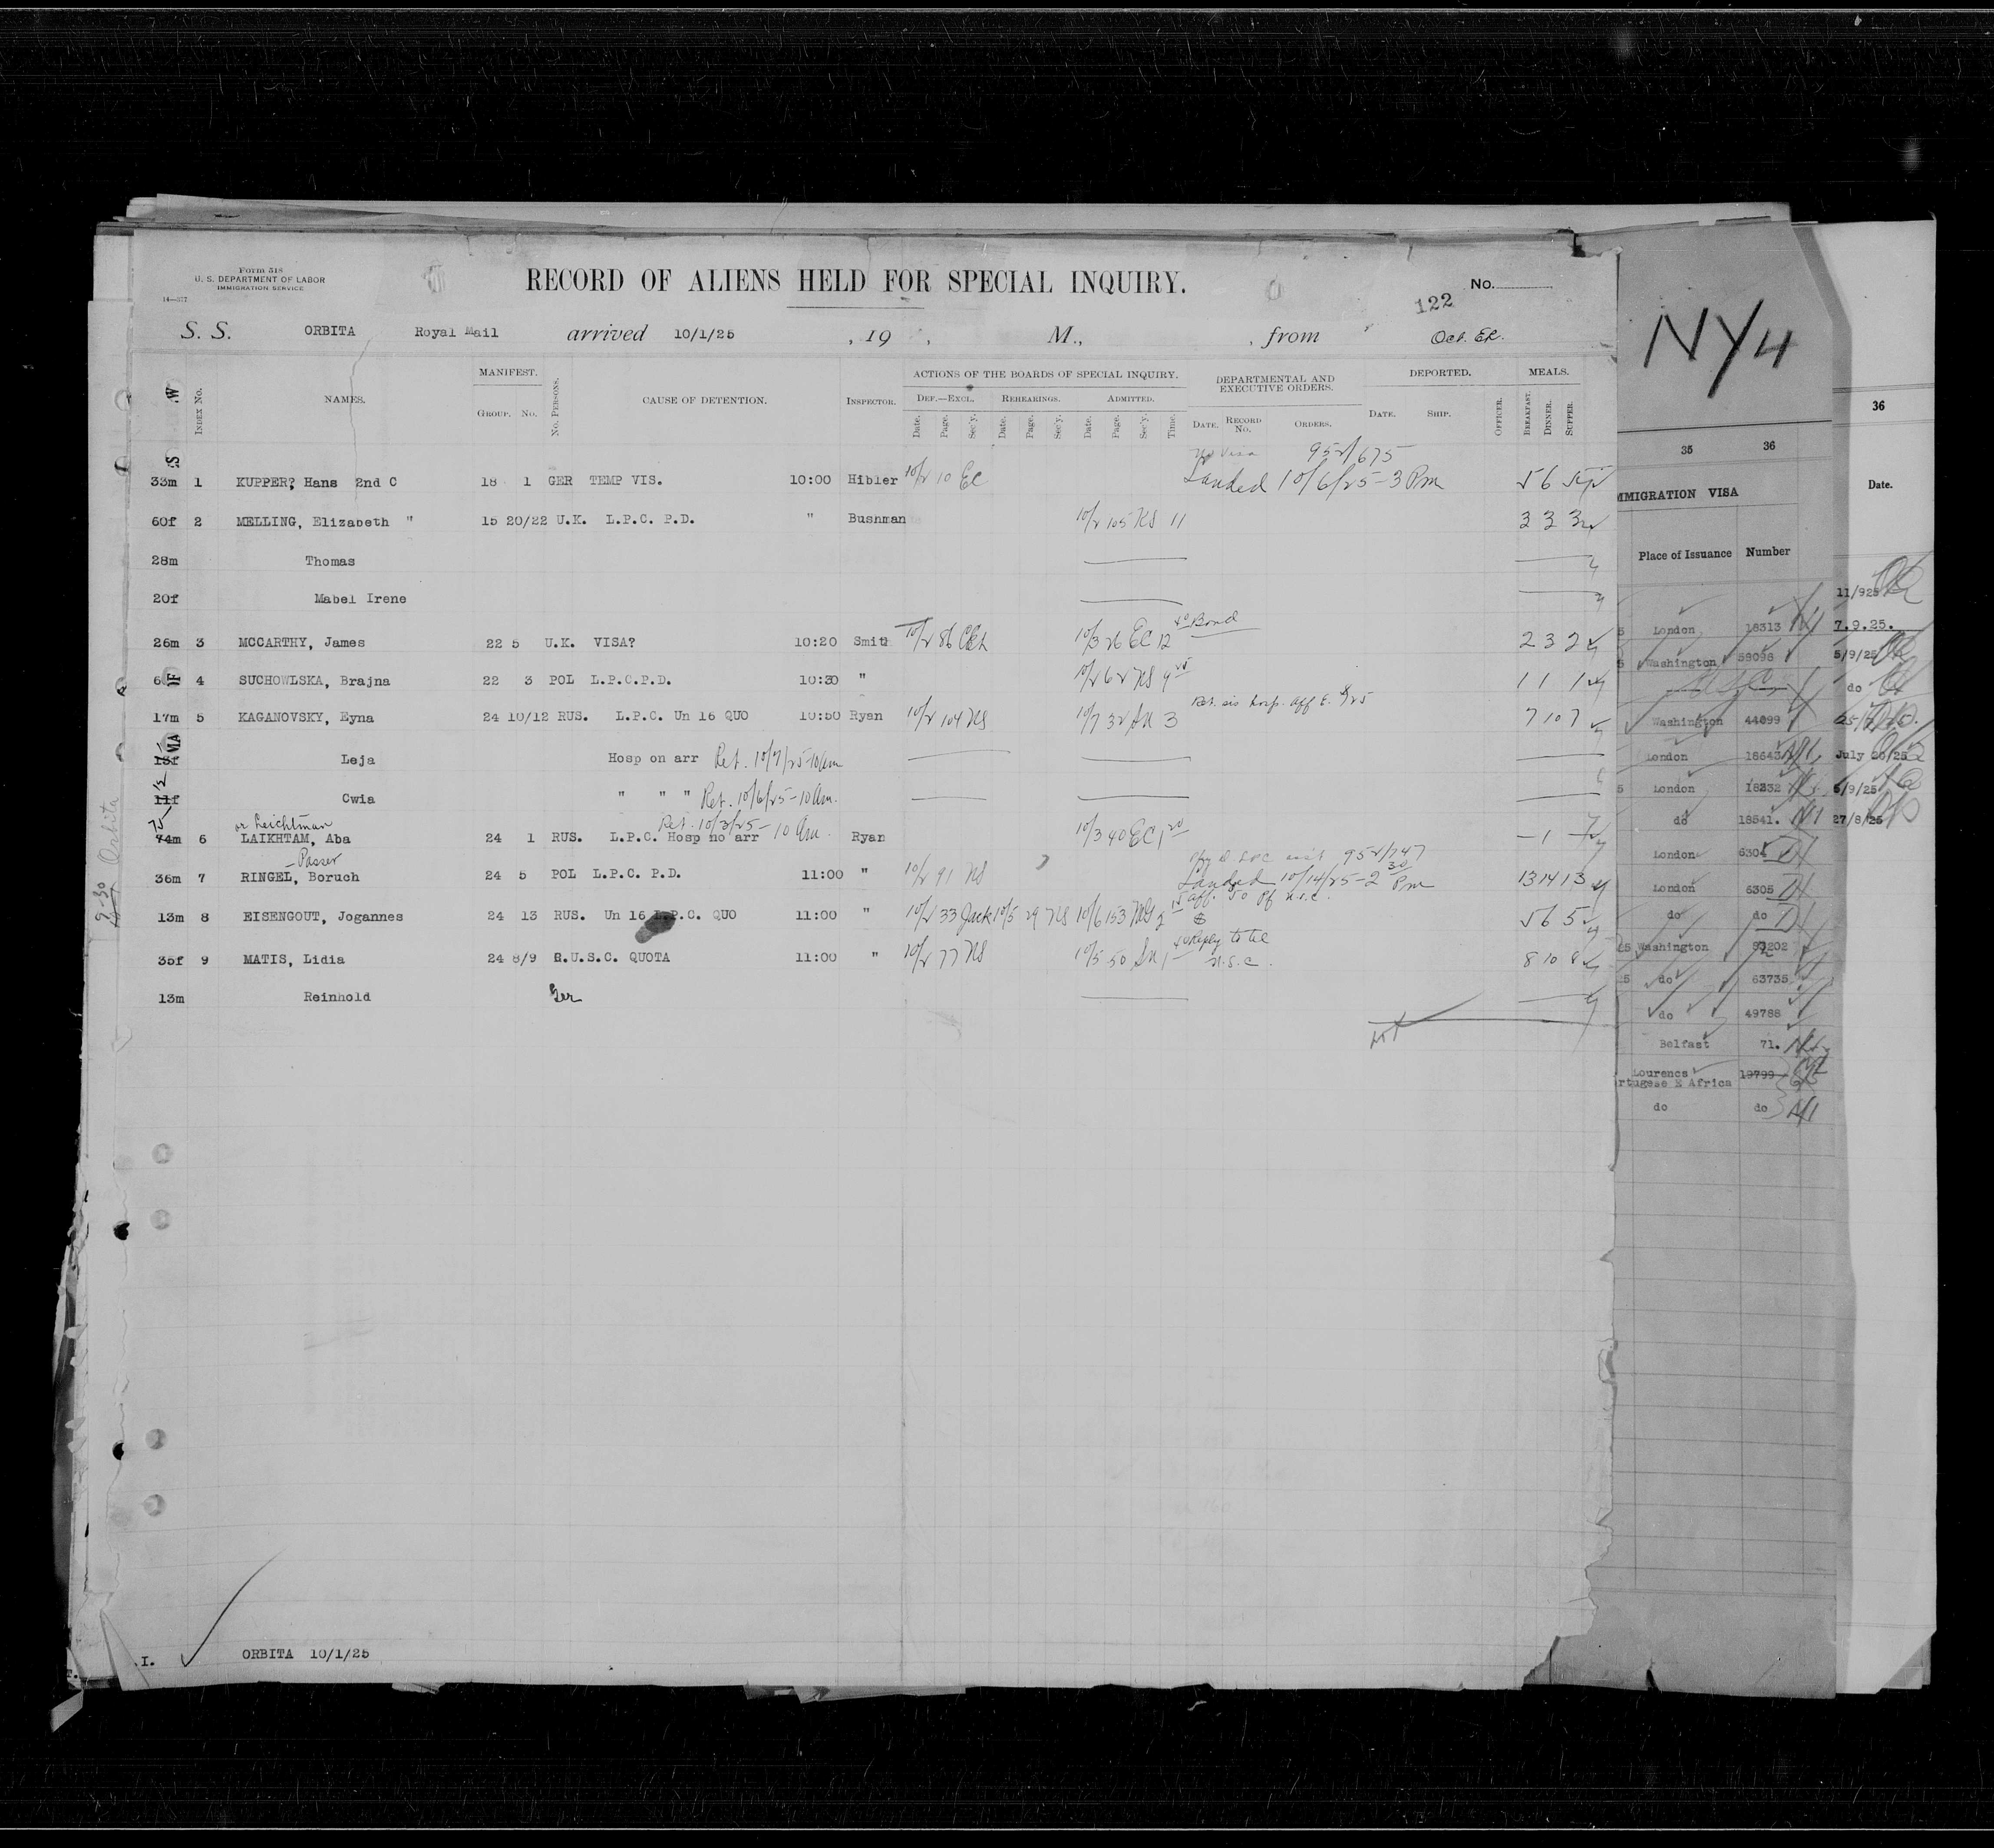 Form 518
U. S. DEPARTMENT OF LABOR
IMMIGRATION SERVICE
14—527
RECORD OF ALIENS HELD FOR SPECIAL INQUIRY.
No.
122
S. S. ORBITA Royal Mail arrived 10/1/25 , 19 , M., , from
INDEX No.
NAMES.
MANIFEST.
GROUP. No.
No. PERSONS.
CAUSE OF DETENTION.
INSPECTOR.
ACTIONS OF THE BOARDS OF SPECIAL INQUIRY.
DEF.—EXCL. REHEARINGS. ADMITTED.
Date. Page. Sec'y. Date. Page. Sec'y. Date. Page. Sec'y. Time.
DEPARTMENTAL AND EXECUTIVE ORDERS.
DATE. RECORD No. ORDERS.
DEPORTED.
DATE. SHIP. OFFICER.
MEALS.
BREAKFAST. DINNER. SUPPER.
No Visa 952/675
33m 1 KUPPER? Hans 2nd C 18 1 GER TEMP VIS. 10:00 Hibler 10/2 10 EC Landed 10/6/25-3 Pm 5 6
60f 2 MELLING, Elizabeth " 15 20/22 U.K. L.P.C. P.D. " Bushman 10/2 105 NS 11 3 3 3
28m Thomas
20f Mabel Irene
26m 3 MCCARTHY, James 22 5 U.K. VISA? 10:20 Smith 10/2 86 10/3 26 EC 12 40 Bond 2 3 2
4 SUCHOWLSKA, Brajna 22 3 POL L.P.C.P.D. 10:30 " 10/2 62 NS 9 1 1 1
17m 5 KAGANOVSKY, Eyna 24 10/12 RUS. L.P.C. Un 16 QUO 10:50 Ryan 10/2 104 NS 10/7 32 3 7 10 7
Leja Hosp on arr Ret. 10/7/25-10 am
11f Cwia " " " Ret. 10/6/25-10 Am.
or Leichtman Ret. 10/3/25-10 Am.
74m 6 LAIKHTAM, Aba 24 1 RUS. L.P.C. Hosp no arr Ryan 10/3 40 EC 1 20 — 1
—Passer
36m 7 RINGEL, Boruch 24 5 POL L.P.C. P.D. 11:00 " 10/2 91 NS 952/747 Landed 10/14/25-2 30 Pm 13 14 13
13m 8 EISENGOUT, Jogannes 24 13 RUS. Un 16 L.P.C. QUO 11:00 " 10/2 33 Jack 10/5 29 NS 10/6 153 2 5 6 5
35f 9 MATIS, Lidia 24 8/9 R.U.S.C. QUOTA 11:00 " 10/2 77 NS 10/5 50 1 Reply to tel 8 10 8
13m Reinhold Ger
9-30 Orbita
I. ORBITA 10/1/25
NY4
35 36
IMMIGRATION VISA
Place of Issuance Number
London 18313
Washington 58098
Washington 44099
London 18643
London 18232
do 18541.
London 6304
London 6305
do do
Washington
do 63735
do 49788
Belfast 71.
Lourencs
rtugese E Africa 19799
do do
36
Date.
11/925
7.9.25.
5/9/25
do
July 20/25
5/9/25
27/8/25